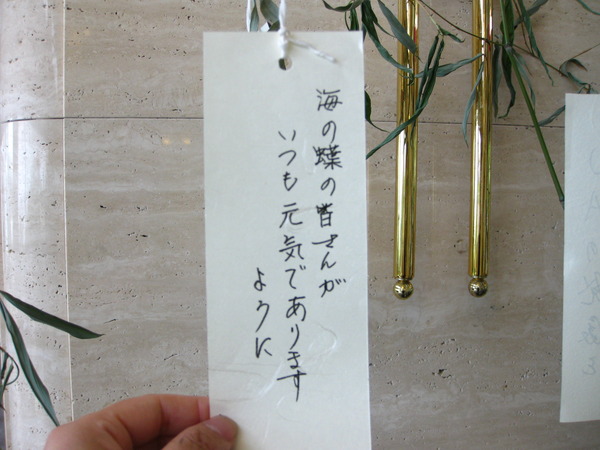 海の蝶の皆さんが
いつも元気であります
ように